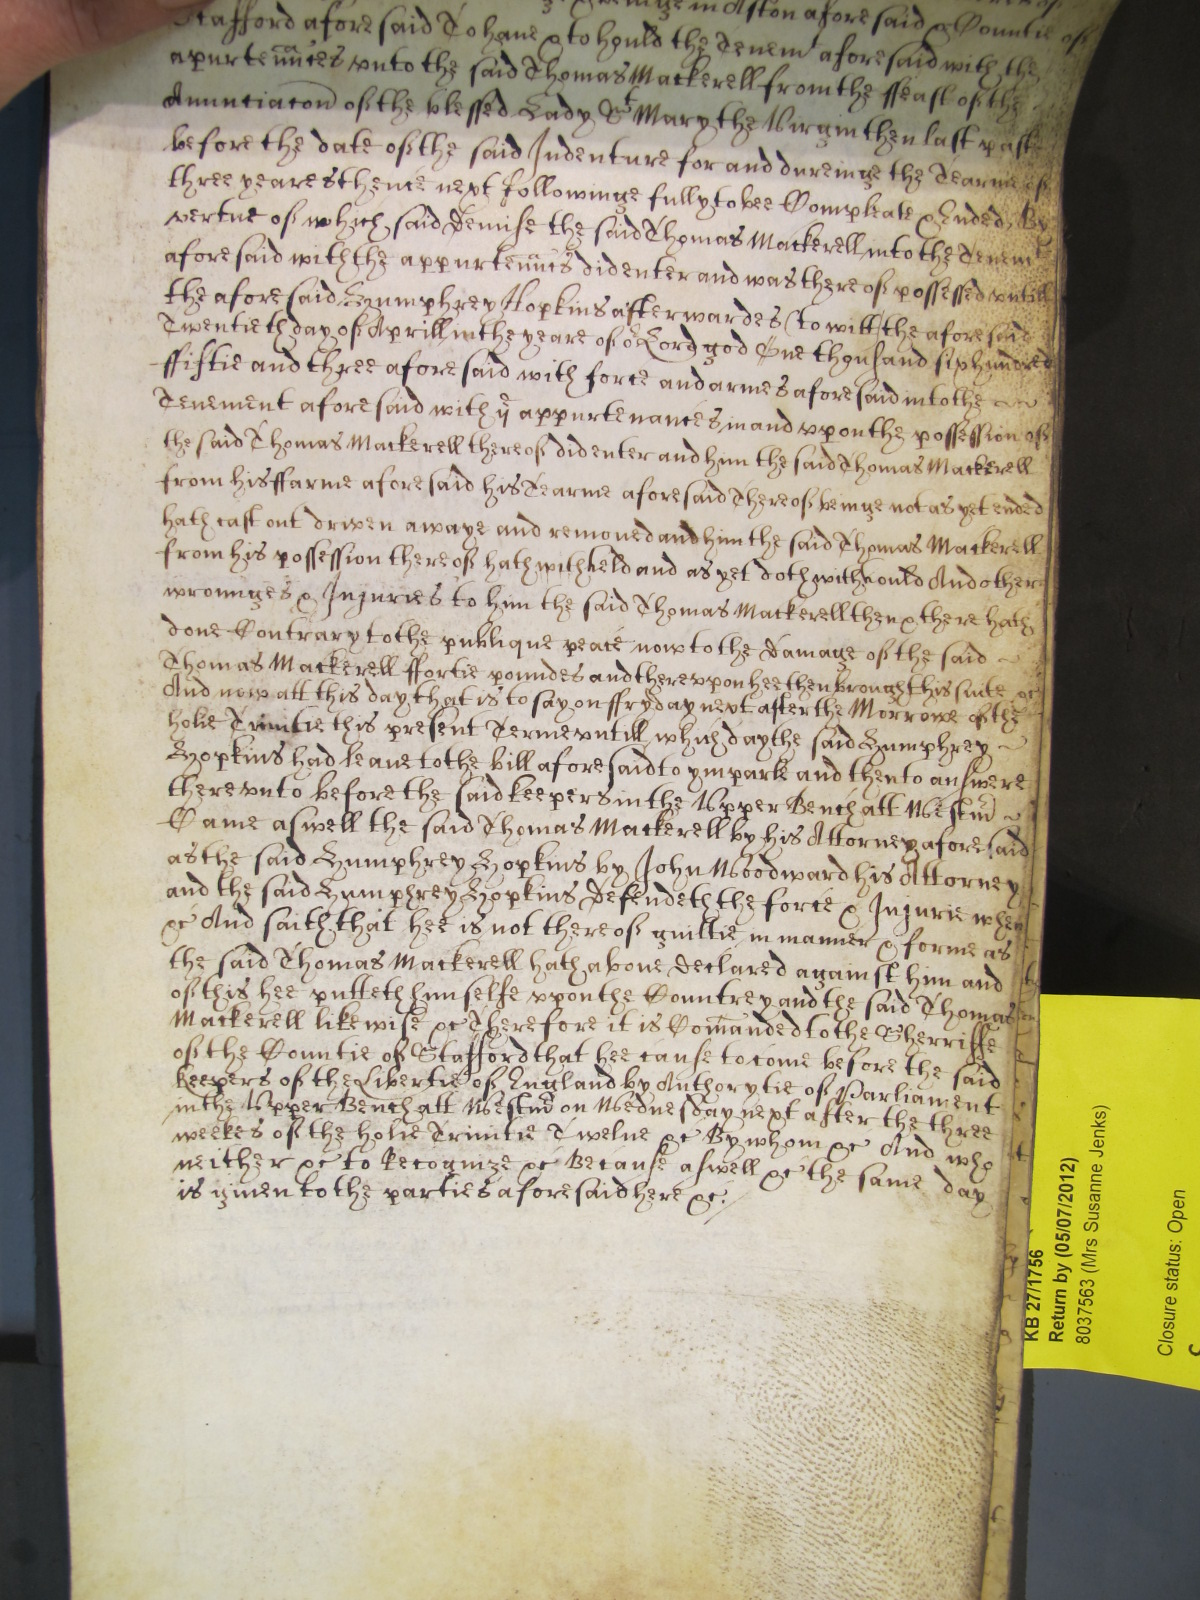 in Aston afore said & Countie of
Stafford afore said To have & to hould the Tenemt afore said with the
apurtenñces vnto the said Thomas Mackerell from the ffeast of the
Anunciacon of the blessed Lady St Mary the Virgin then last past
before the date of the said Indenture for and dureinge the Tearme of
three yeares thence next followinge fully to bee Compleate & Ended By
vertue of which said Demise the said Thomas Mackerell into the Tenemt
afore said with the appurtenñces did enter and was thereof possessed vntill
the afore said Humphrey Hopkins afterwardes (to witt) the afore said
Twentieth day of Aprill in the yeare of or Lord god One thousand six hundred
ffiftie and three afore said with force and armes afore said into the
Tenement afore said with ye appurtenances in and vpon the possession of
the said Thomas Mackerell thereof did enter and him the said Thomas Mackerell
from his ffarme afore said his Tearme afore said Thereof beinge not as yet ended
hath cast out driven awaye and removed and him the said Thomas Mackerell
from his possession thereof hath withheld and as yet doth withhould And other
wrounges & Injuries to him the said Thomas Mackerell then & there hath
done Contrary to the publique peace now to the Damage of the said
Thomas Mackerell ffortie poundes and therevpon hee then brought his suite &c
And now att this day that is to say on ffryday next after the Morrowe of the
holie Trinitie this present Terme vntill which day the said Humphrey
Hopkins had leave to the bill afore said to ymparle and then to answere
therevnto before the said keepers in the Vpper Bench att Westm̃
Came aswell the said Thomas Mackerell by his Attorney afore said
as the said Humphrey Hopkins by John Woodward his Attorney
and the said Humphrey Hopkins Defendeth the force & Injurie when
&c And saith that hee is not thereof guiltie in manner & forme as
the said Thomas Mackerell hath above Declared against him and
of this hee putteth himselfe vpon the Countrey and the said Thomas
Mackerell likewise &c Therefore it is Com̃anded to the Sherriffe
of the Countie of Stafford that hee cause to come before the said
keepers of the Libertie of England by Authorytie of Parliament
in the Vpper Bench att Westm̃ on Wednesday next after the three
weekes of the holie Trinitie Twelve &c By whom &c And who
neither &c to Recognize &c Because aswell &c the same day
is given to the parties afore said here &c.
KB 27/1756
Return by (05/07/2012)
8037563 (Mrs Susanne Jenks)
Closure status: Open